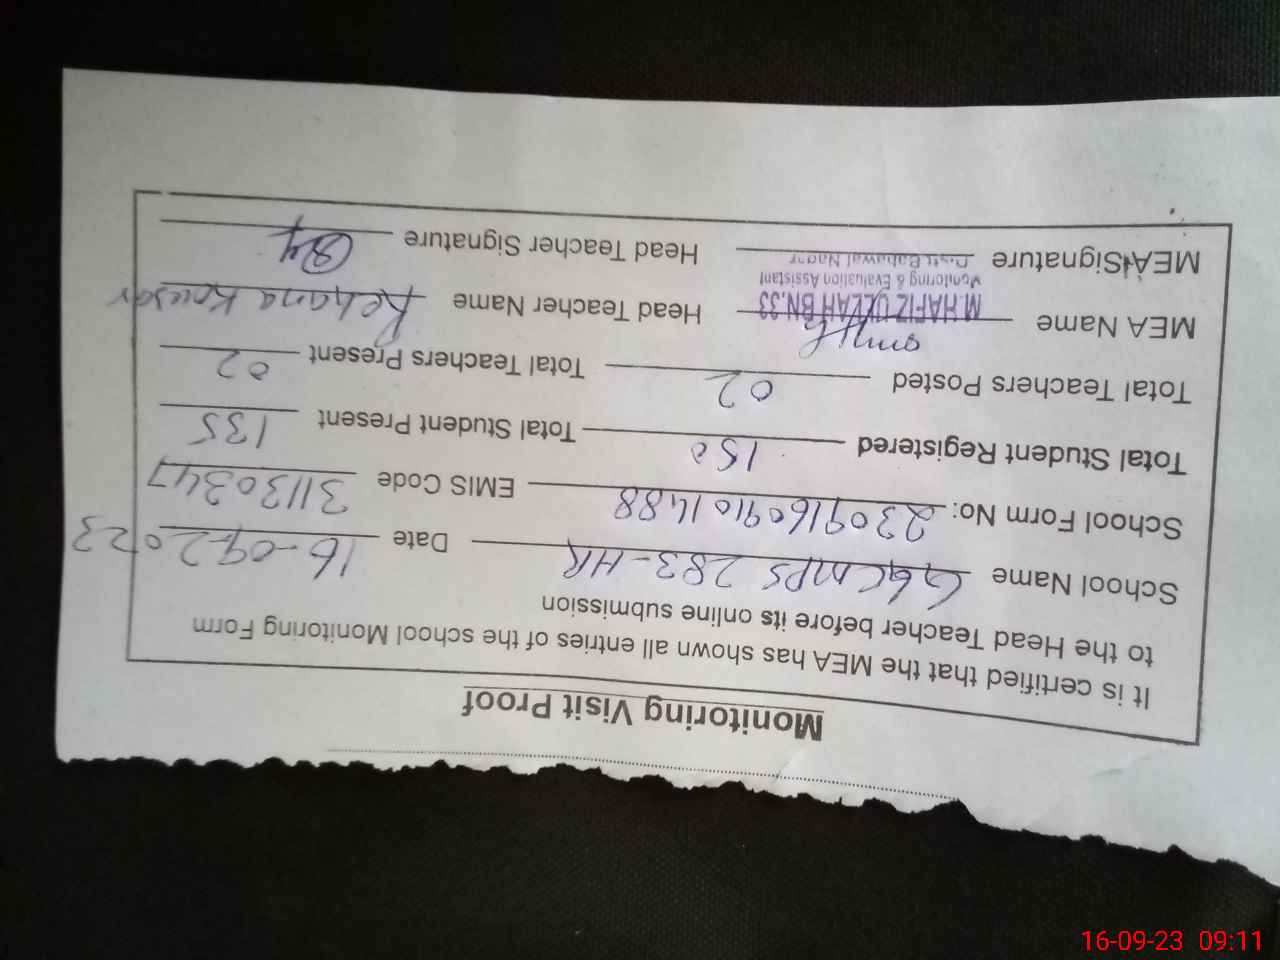 Monitoring Visit Proof
It is certified that the MEA has shown all entries of the school Monitoring Form
to the Head Teacher before its online submission
School Name GGCMPS 283-HR Date 16-09-2023
School Form No: 23091609101488 EMIS Code 31130347
Total Student Registered 150 Total Student Present 135
Total Teachers Posted 02 Total Teachers Present 02
MEA Name M.HAFIZ ULLAH BN.33 Head Teacher Name Rehana Kousar
Monitoring & Evaluation Assistant
Distt. Bahawal Nagar
MEA Signature Head Teacher Signature
16-09-23 09:11